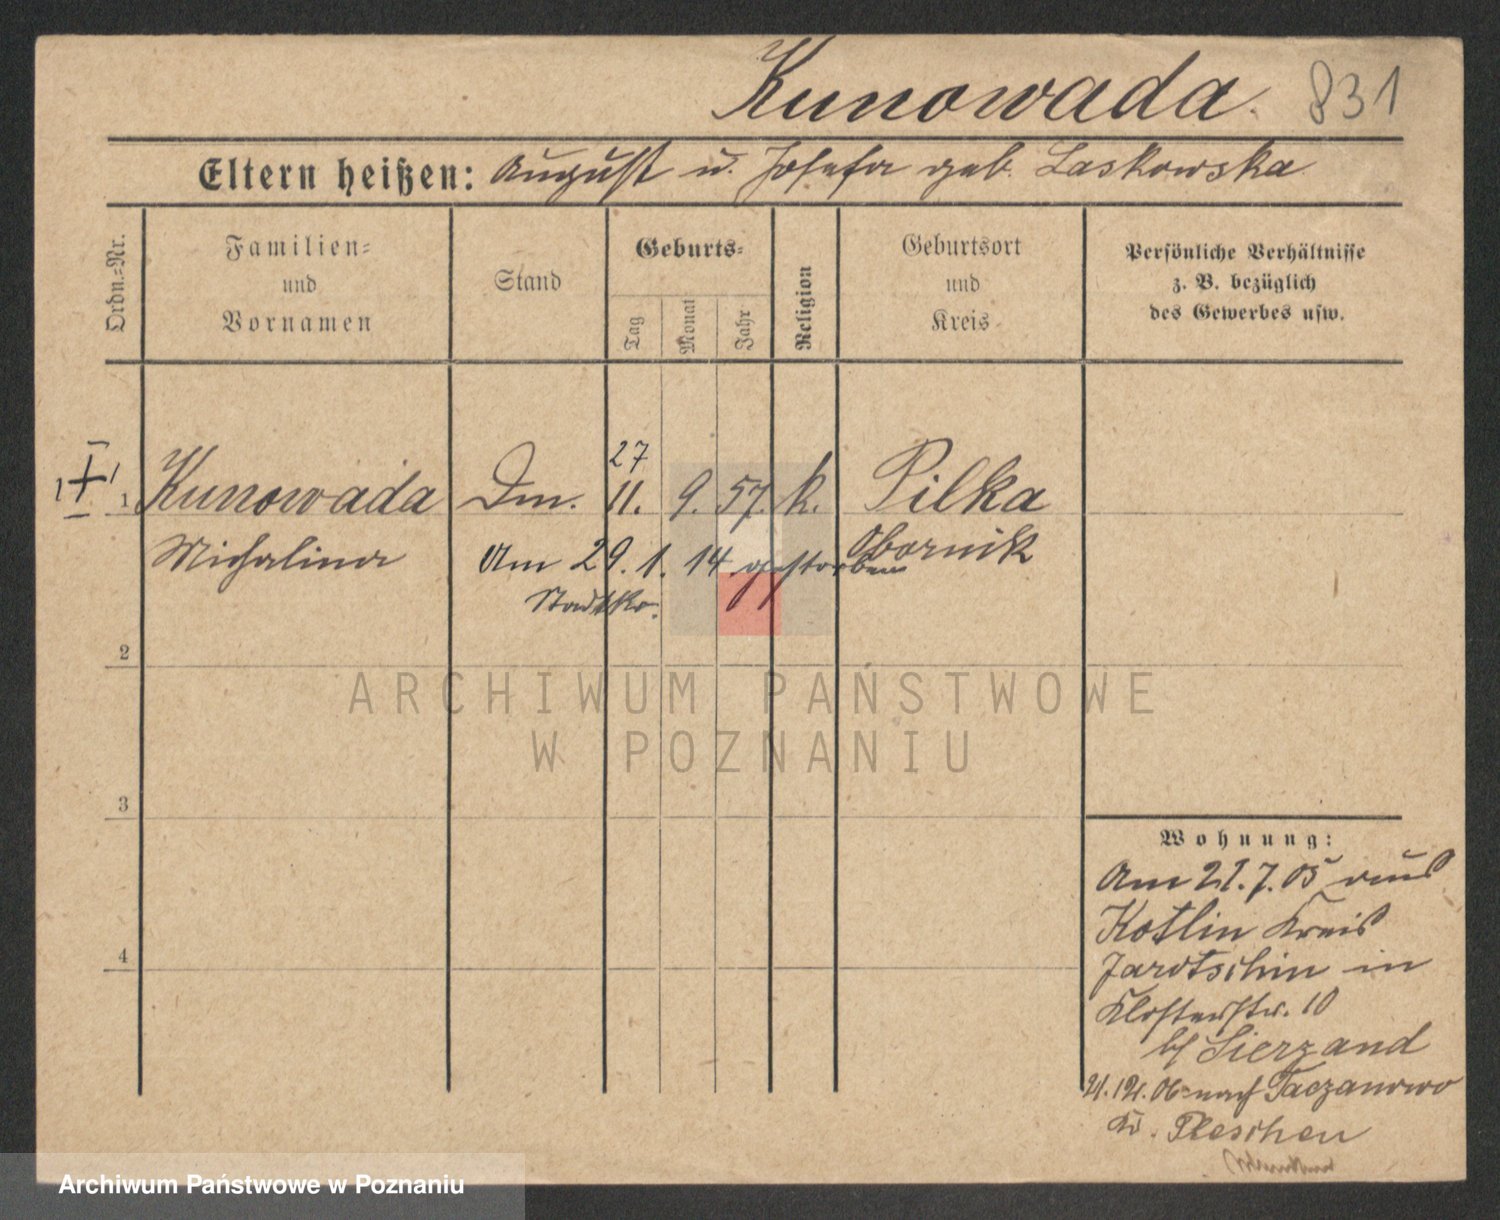 Kunowada. 831
Eltern heißen: August u. Josefa geb. Laskowska
Ordn.=Nr.
Familien=
und
Vornamen
Stand
Geburts=
Tag
Monat
Jahr
Religion
Geburtsort
und
Kreis
Persönliche Verhältnisse
z. B. bezüglich
des Gewerbes usw.
27
1 Kunowada Dm. 11. 9. 57. k. Pilka
Michalina Obornik
Am 29. 1. 14 gestorben
2
3
4
ARCHIWUM PAŃSTWOWE
W POZNANIU
Wohnung:
Am 21. 7. 05 aus
Kotlin Kreis
Jarotschin in
Klosterstr. 10
bei Sierzand
21. 12. 06 nach Taczanowo
Kr. Pleschen
Archiwum Państwowe w Poznaniu